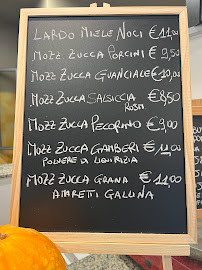 LARDO MIELE NOCI €11,00
MOZZ. ZUCCA PORCINI €9,50
MOZZ ZUCCA GUANCIALE €10,00
MOZZ ZUCCA SALSICCIA €8,50
ROSM
MOZZ ZUCCA PECORINO €9,00
MOZZ ZUCCA GAMBERI €11,00
POLVERE DI LIQUIRIZIA
MOZZ ZUCCA GRANA €11,00
AMARETTI GALLINA